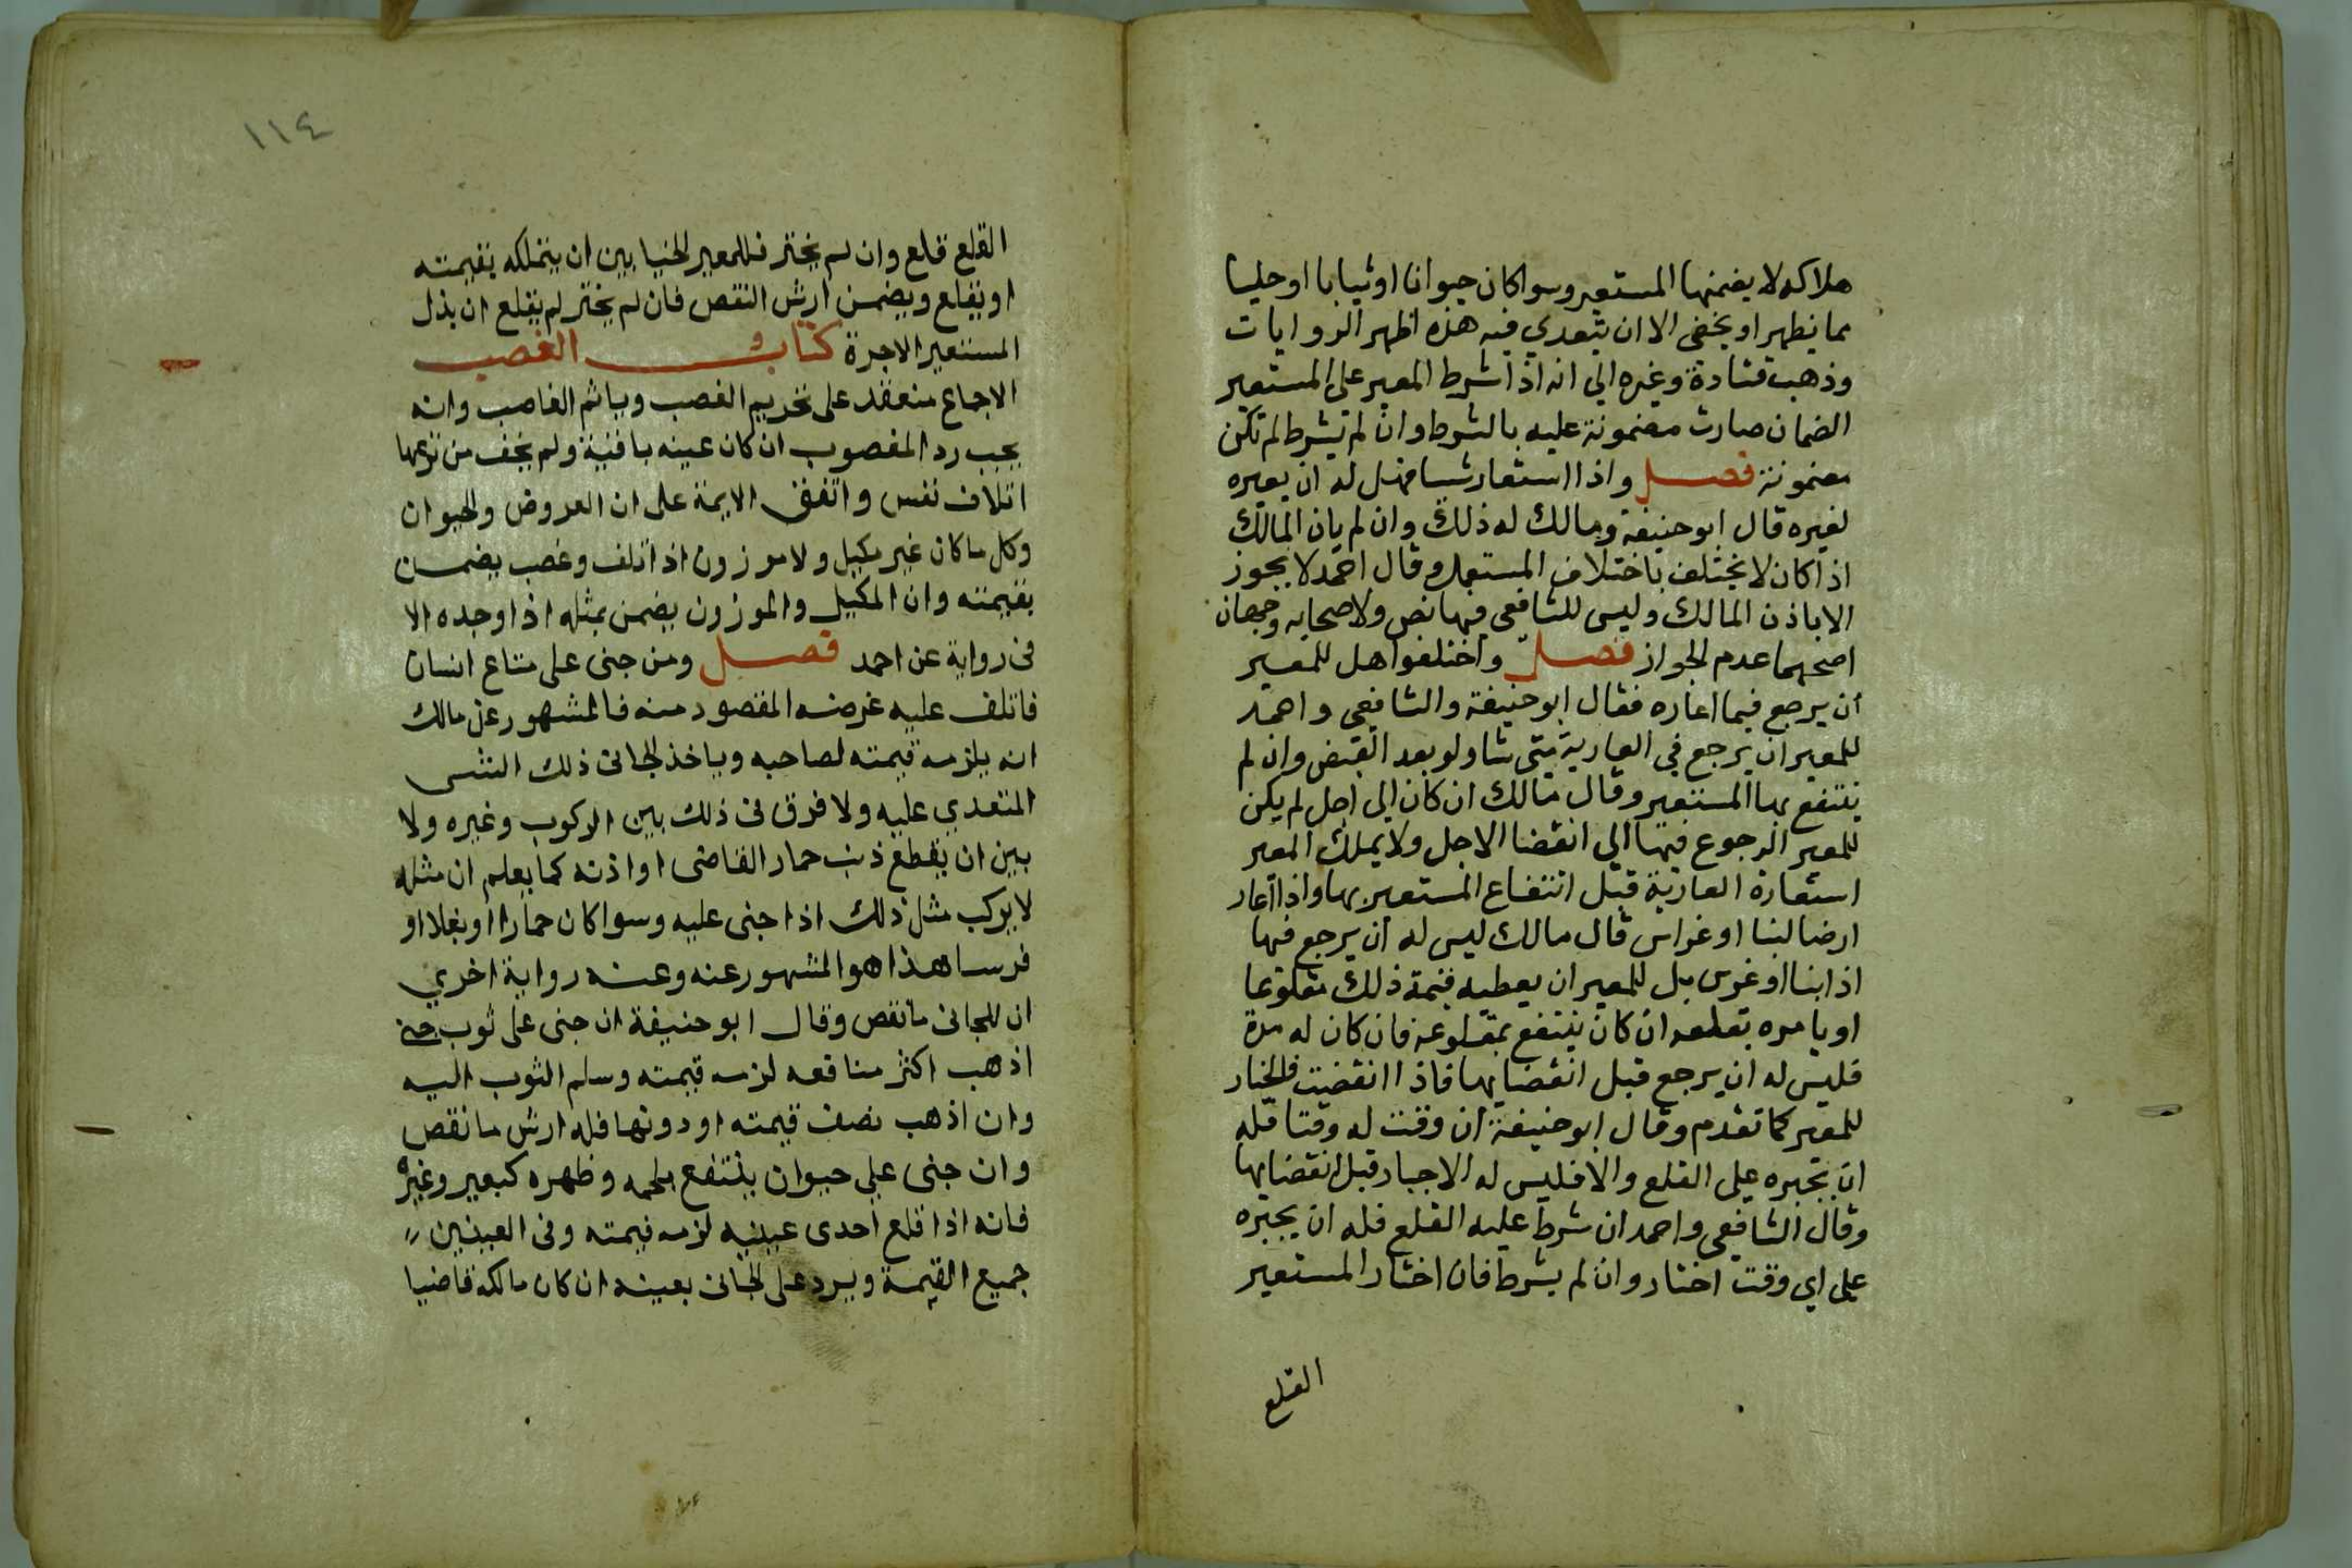 هلاكه لا يضمنها المستعير وسواكان حيوانا اوثيابا اوحليا
مما يظهر او يخفى الا ان يتعدي فيه هذه اظهر الروايات
وذهب قتادة وغيره الي انه اذا شرط المعير على المستعير
الضمان صارت مضمونة عليه بالشرط وان لم يشرط لم تكن
مضمونة فصل واذا استعار شيا فهل له ان يعيره
لغيره قال ابوحنيفة ومالك له ذلك وان لم ياذن المالك
اذا كان لا يختلف باختلاف المستعمل وقال احمد لا يجوز
الا باذن المالك وليس للشافعي فيها نص ولاصحابه وجهان
اصحهما عدم الجواز فصل واختلفوا هل للمعير
ان يرجع فيما اعاره فقال ابوحنيفة والشافعي واحمد
للمعير ان يرجع في العارية متى شا ولو بعد القبض وان لم
ينتفع بها المستعير وقال مالك ان كان الي اجل لم يكن
للمعير الرجوع فيها الي انقضا الاجل ولا يملك المعير
استعارة العارية قبل انتفاع المستعير بها واذا اعار
ارضا لبنا او غراس قال مالك ليس له ان يرجع فيها
اذا بنا او غرس بل للمعير ان يعطيه قيمة ذلك مقلوعا
او يامره بقلعه ان كان ينتفع بمقلوعه فان كان له مدة
فليس له ان يرجع قبل انقضايها فاذا انقضت فالخيار
للمعير كما تقدم وقال ابوحنيفة ان وقت له وقتا فله
ان يجبره على القلع والا فليس له الاجبار قبل انقضايها
وقال الشافعي واحمد ان شرط عليه القلع فله ان يجبره
على اي وقت اختار وان لم يشرط فان اختار المستعير
القلع
١١٤
القلع قلع وان لم يختر فللمعير الخيا بين ان يتملكه بقيمته
او يقلع ويضمن ارش النقص فان لم يختر لم يقلع ان بذل
المستعير الاجرة كتاب الغصب
الاجماع منعقد على تحريم الغصب وياثم الغاصب وانه
يجب رد المغصوب ان كان عينه باقية ولم يخف من نزعها
اتلاف نفس واتفق الايمة على ان العروض والحيوان
وكل ماكان غير مكيل ولا موزون اذا تلف وغصب يضمن
بقيمته وان المكيل والموزون يضمن بمثله اذا وجده الا
فى رواية عن احمد فصل ومن جنى على متاع انسان
فاتلف عليه غرضه المقصود منه فالمشهور عن مالك
انه يلزمه قيمته لصاحبه وياخذ الجانى ذلك الشى
المتعدي عليه ولا فرق فى ذلك بين الركوب وغيره ولا
بين ان يقطع ذنب حمار القاضى او اذنه كما يعلم ان مثله
لا يركب مثل ذلك اذا جنى عليه وسواكان حمارا او بغلا او
فرسا هذا هو المشهور عنه وعنه رواية اخري
ان للجانى مانقص وقال ابوحنيفة ان جنى على ثوب حتى
اذهب اكثر منافعه لزمه قيمته وسلم الثوب اليه
وان اذهب نصف قيمته او دونها فله ارش مانقص
وان جنى على حيوان ينتفع بلحمه وظهره كبعير وغيره
فانه اذا قلع احدى عينيه لزمه قيمته وفى العينين
جميع القيمة ويرد على الجانى بعينه ان كان مالكه قاضيا